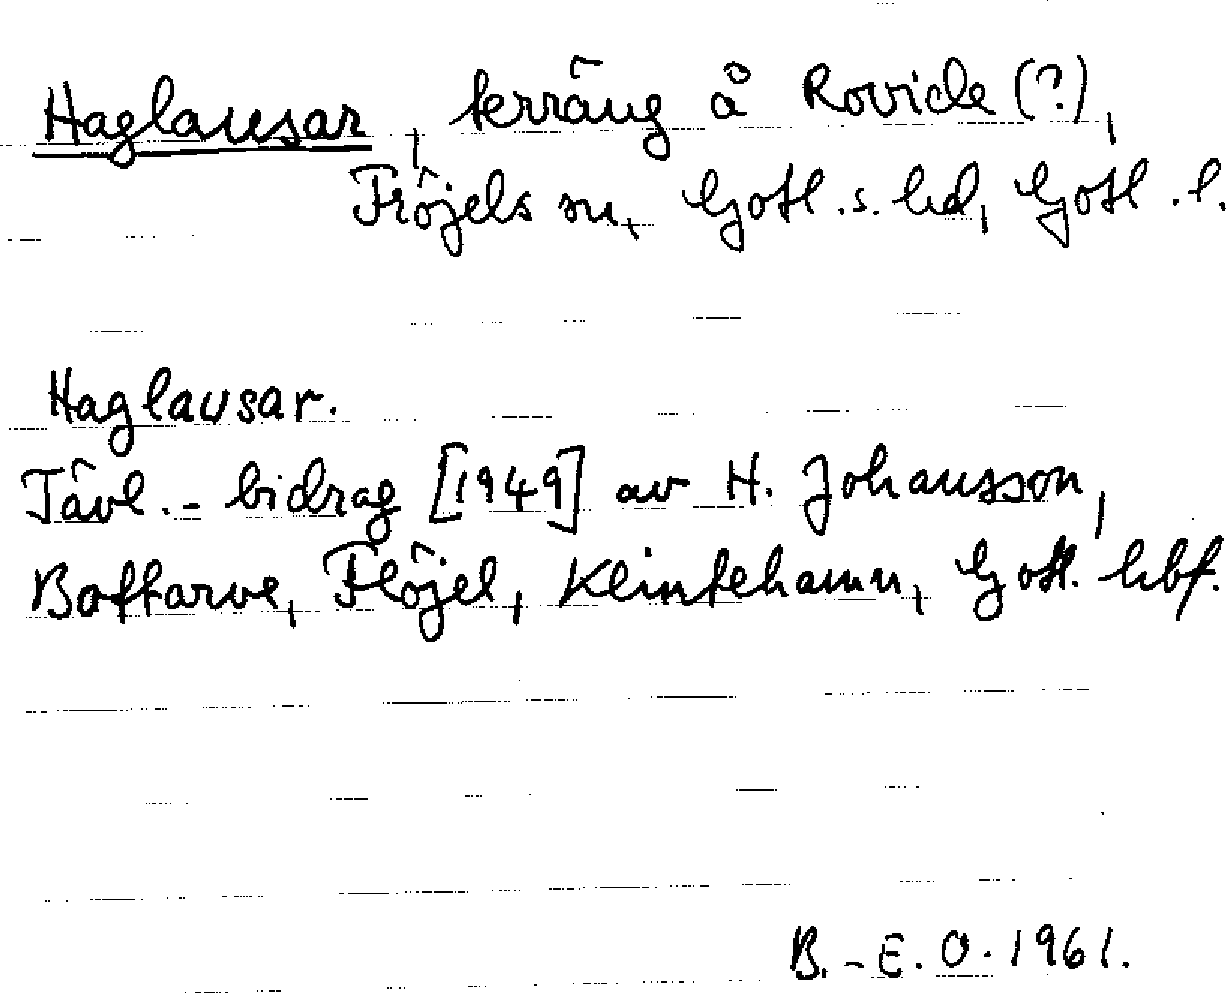 Haglausar, terräng å Rovide (?),
Fröjels sn, Gotl. s. hd, Gotl. l.
Haglausar.
Tävl.-bidrag [1949] av H. Johansson,
Bottarve, Fröjel, Klintehamn, Gotl. hbf.
B.-E. O. 1961.